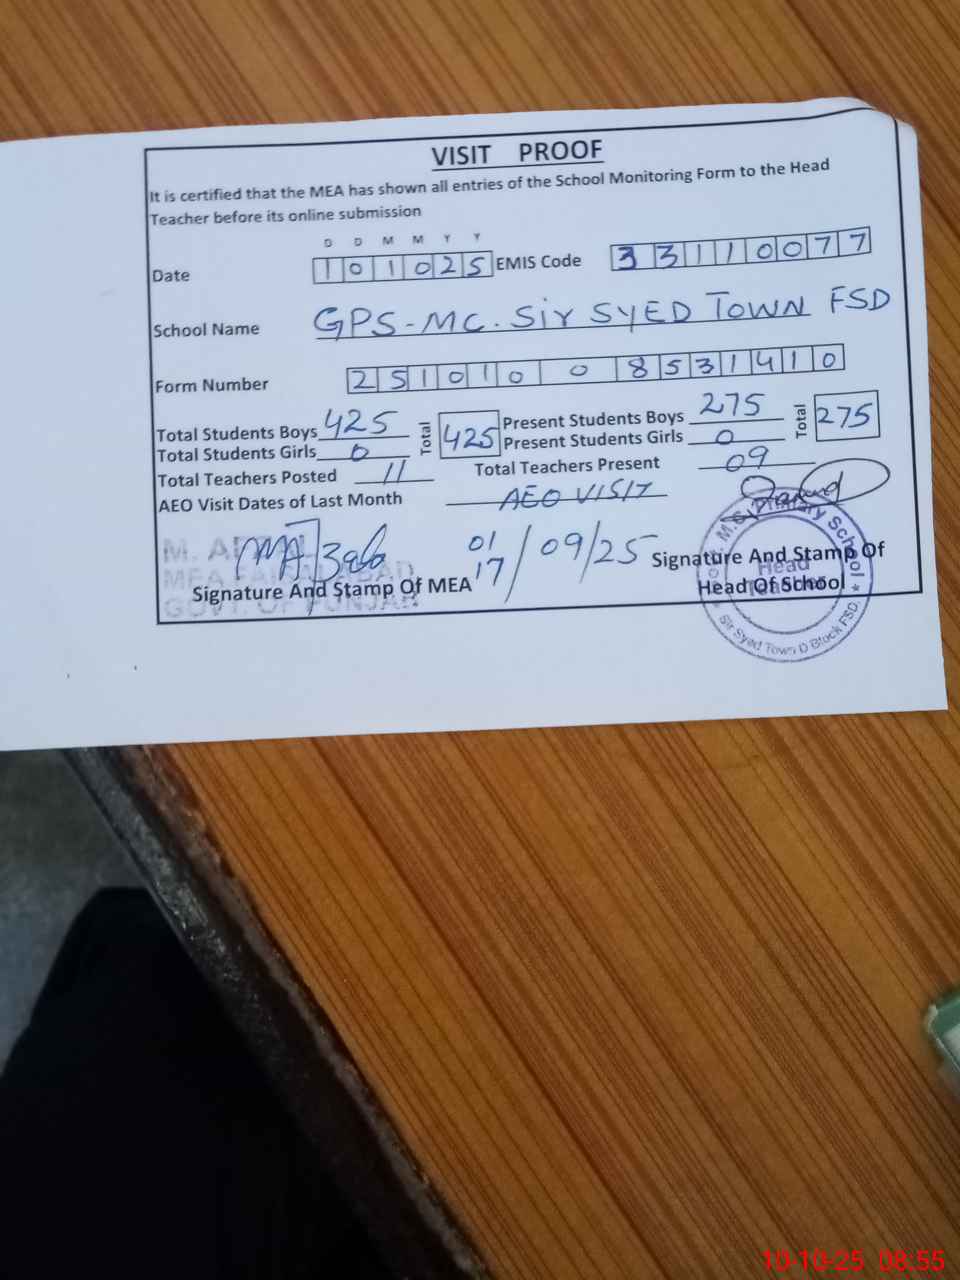 VISIT PROOF
It is certified that the MEA has shown all entries of the School Monitoring Form to the Head
Teacher before its online submission
D D M M Y Y
Date 101025 EMIS Code 33110077
School Name GPS-MC. Sir SYED TOWN FSD
Form Number 25101008531410
Total Students Boys 425 Total 425 Present Students Boys 275 Total 275
Total Students Girls 0 Present Students Girls 0
Total Teachers Posted 11 Total Teachers Present 09
AEO Visit Dates of Last Month AEO VISIT
01
17/09/25
M.
MEA FAISALABAD
GOVT. OF PUNJAB
Signature And Stamp Of MEA
Signature And Stamp Of
Head Of School
M.C. Primary School
Head
Teacher
Sir Syed Town D Block FSD.
10-10-25 08:55